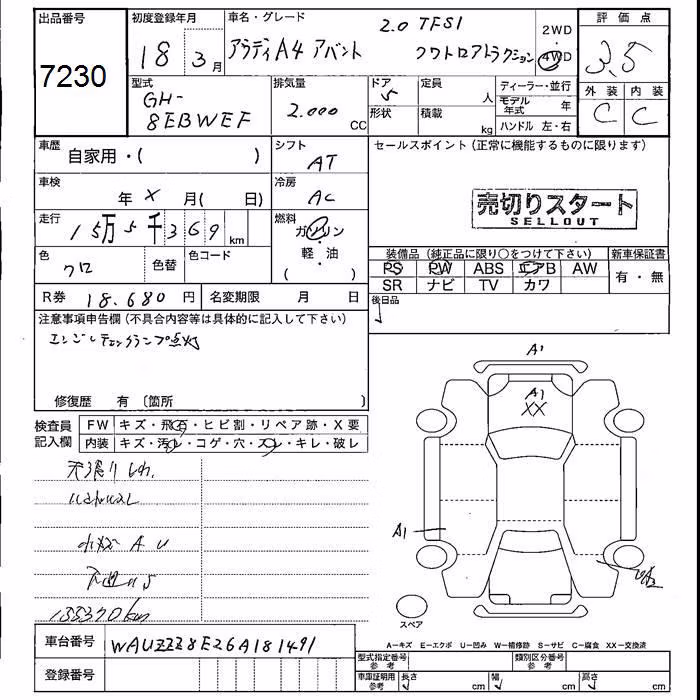 出品番号
7230
初度登録年月
18 3月
車名・グレード
アウディA4 アバント
2.0 TFSI
クワトロアトラクション
2WD
4WD
評価点
3.5
外装 内装
C C
型式
GH-
8EBWEF
排気量
2.000 CC
ドア 5
形状
定員 人
積載 kg
ディーラー・並行
モデル年式 年
ハンドル 左・右
車歴
自家用・( )
シフト
AT
セールスポイント(正常に機能するものに限ります)
車検
年 X 月( 日)
冷房
AC
売切りスタート
SELLOUT
走行
15万5千369km
燃料
ガソリン
・
軽・油
( )
色
クロ
色替
色コード
装備品(純正品に限り○をつけて下さい) 新車保証書
PS PW ABS エアB AW
SR ナビ TV カワ
有・無
R券 18.680円
名変期限 月 日
後日品
注意事項申告欄(不具合内容等は具体的に記入して下さい)
エンジンチェックランプ点灯
修復歴 有 〔箇所
検査員
記入欄
FW キズ・飛石・ヒビ割・リペア跡・X要
内装 キズ・汚レ・コゲ・穴・スレ・キレ・破レ
天張りしわ
小キズ A U
下廻りS
155370km
A1
A1
XX
A1
スペア
A-キズ E-エクボ U-凹み W-補修跡 S-サビ C-腐食 XX-交換済
車台番号
WAUZZZ8E26A181491
登録番号
型式指定番号
参考
類別区分番号
参考
車庫証明用
参考
長さ cm
幅 cm
高さ cm